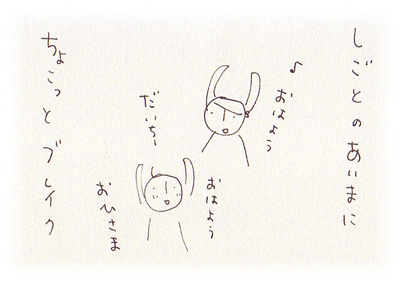 しごとのあいまに
♪おはよう
だいちー
おはよう
おひさま
ちょこっとブレイク